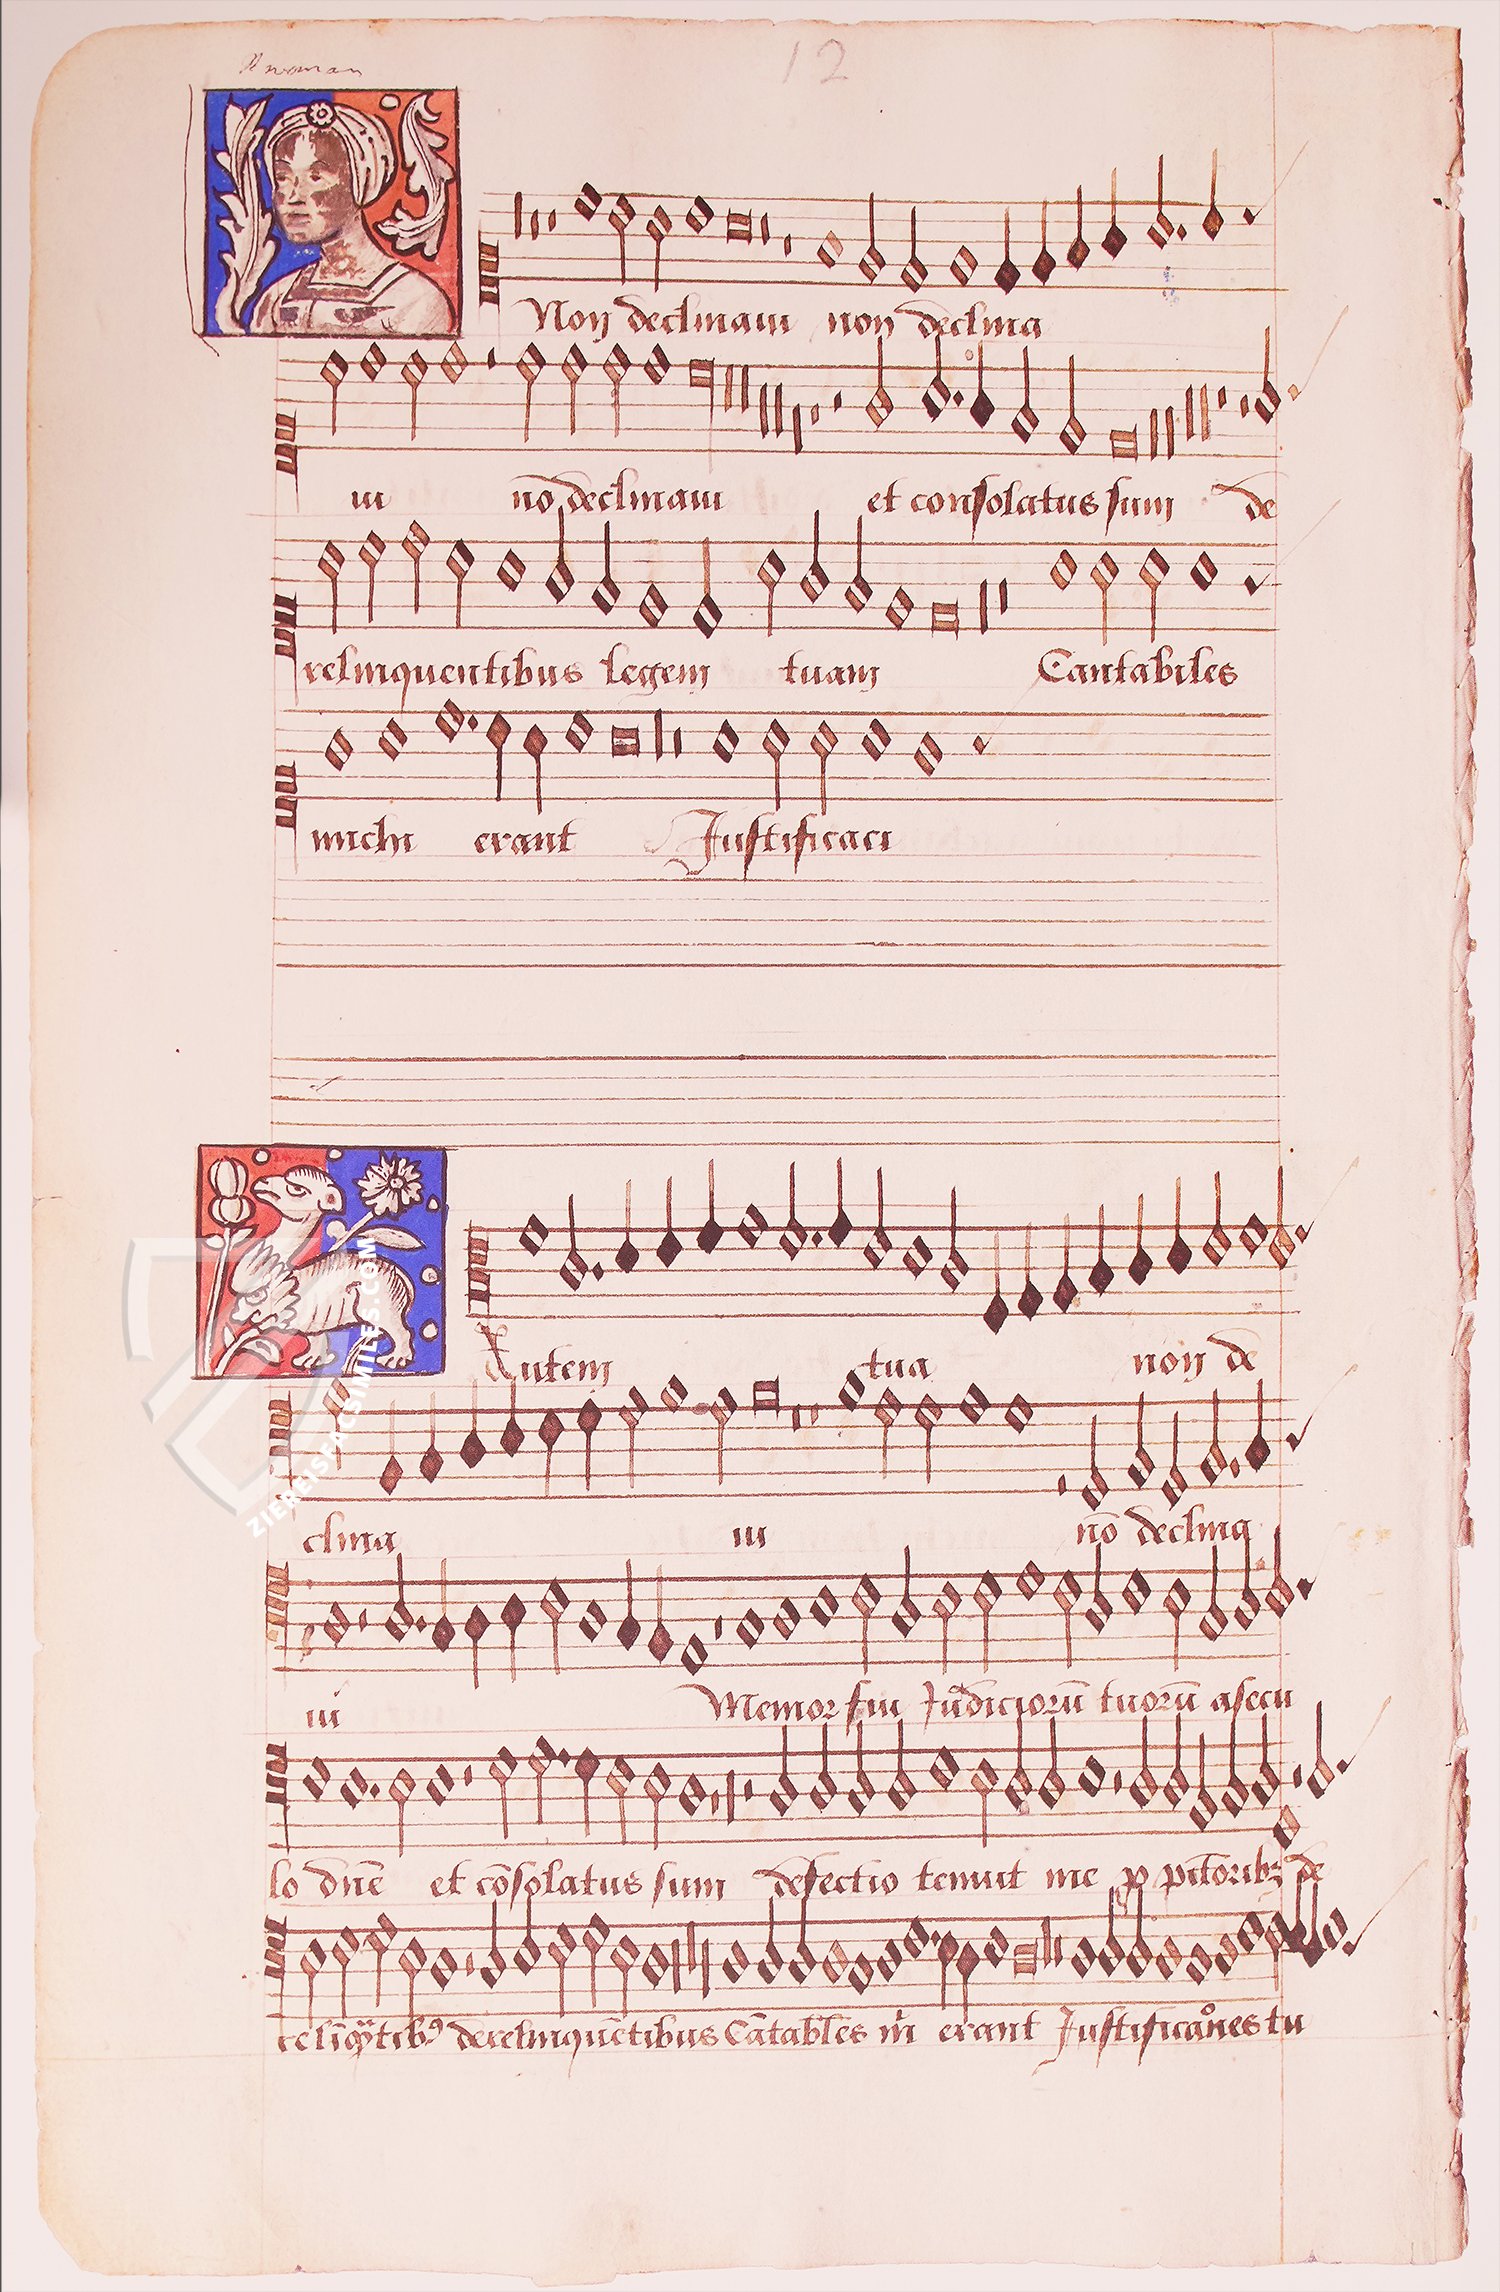 A woman
12
Non declinaui non declina
ui no declinaui et consolatus sum de
relinquentibus legem tuam Cantabiles
michi erant Justificaci
Autem tua non de
clina ui nō declina
ui Memor fui Judiciorū tuorū asecu
lo dn̄e et cōsolatus sum defectio tenuit me p
de
derelinquētibus Cātabiles m̄ erant Justificaōnes tu
ZIEREISFACSIMILES.COM